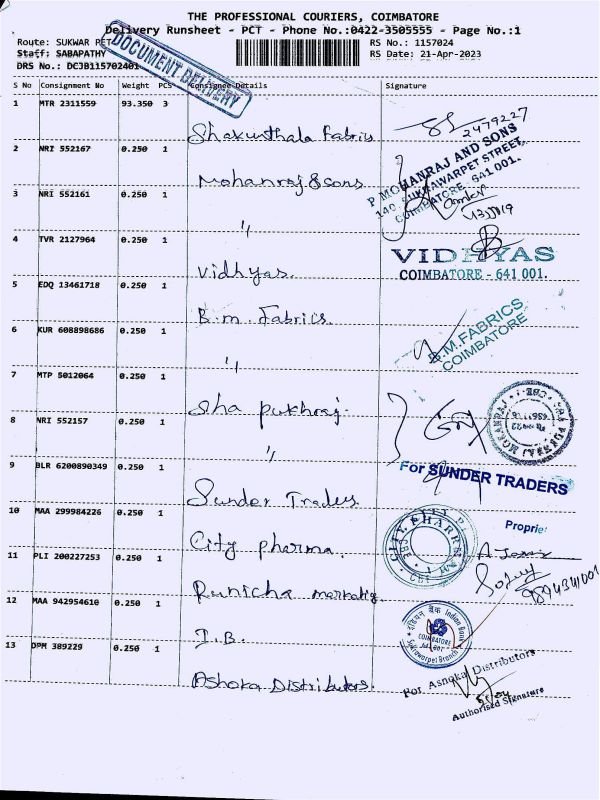 THE PROFESSIONAL COURIERS, COIMBATORE
Delivery Runsheet - PCT - Phone No.:0422-3505555 - Page No.:1
Route: SUKWAR PET
RS No.: 1157024
Staff: SABAPATHY
RS Date: 21-Apr-2023
DRS No.: DCJB115702401
DOCUMENT DELIVERY
S No Consignment No Weight PCS Consignee Details Signature
1 MTR 2311559 93.350 3
Shakunthala Fabrics
2479227
2 NRI 552167 0.250 1
Mohanraj & sons
P MOHANRAJ AND SONS
140, SUKRAWARPET STREET,
COIMBATORE - 641 001.
3 NRI 552161 0.250 1
"
4 TVR 2127964 0.250 1
Vidhyas.
VIDHYAS
COIMBATORE - 641 001.
5 EDQ 13461718 0.250 1
B.m. Fabrics.
B.M.FABRICS
COIMBATORE
6 KUR 608898686 0.250 1
"
7 MTP 5012064 0.250 1
Sha pukhraj
8 NRI 552157 0.250 1
"
9 BLR 6200890349 0.250 1
Sunder Traders
For SUNDER TRADERS
Proprie
10 MAA 299984226 0.250 1
City pharma.
CITY PHARM
11 PLI 200227253 0.250 1
Runicha marketing
12 MAA 942954610 0.250 1
I.B.
इंडियन बैंक Indian Bank
COIMBATORE
Sukrawarpet Branch
13 DPM 389229 0.250 1
Ashoka Distributors.
For Ashoka Distributors
Authorised Signature